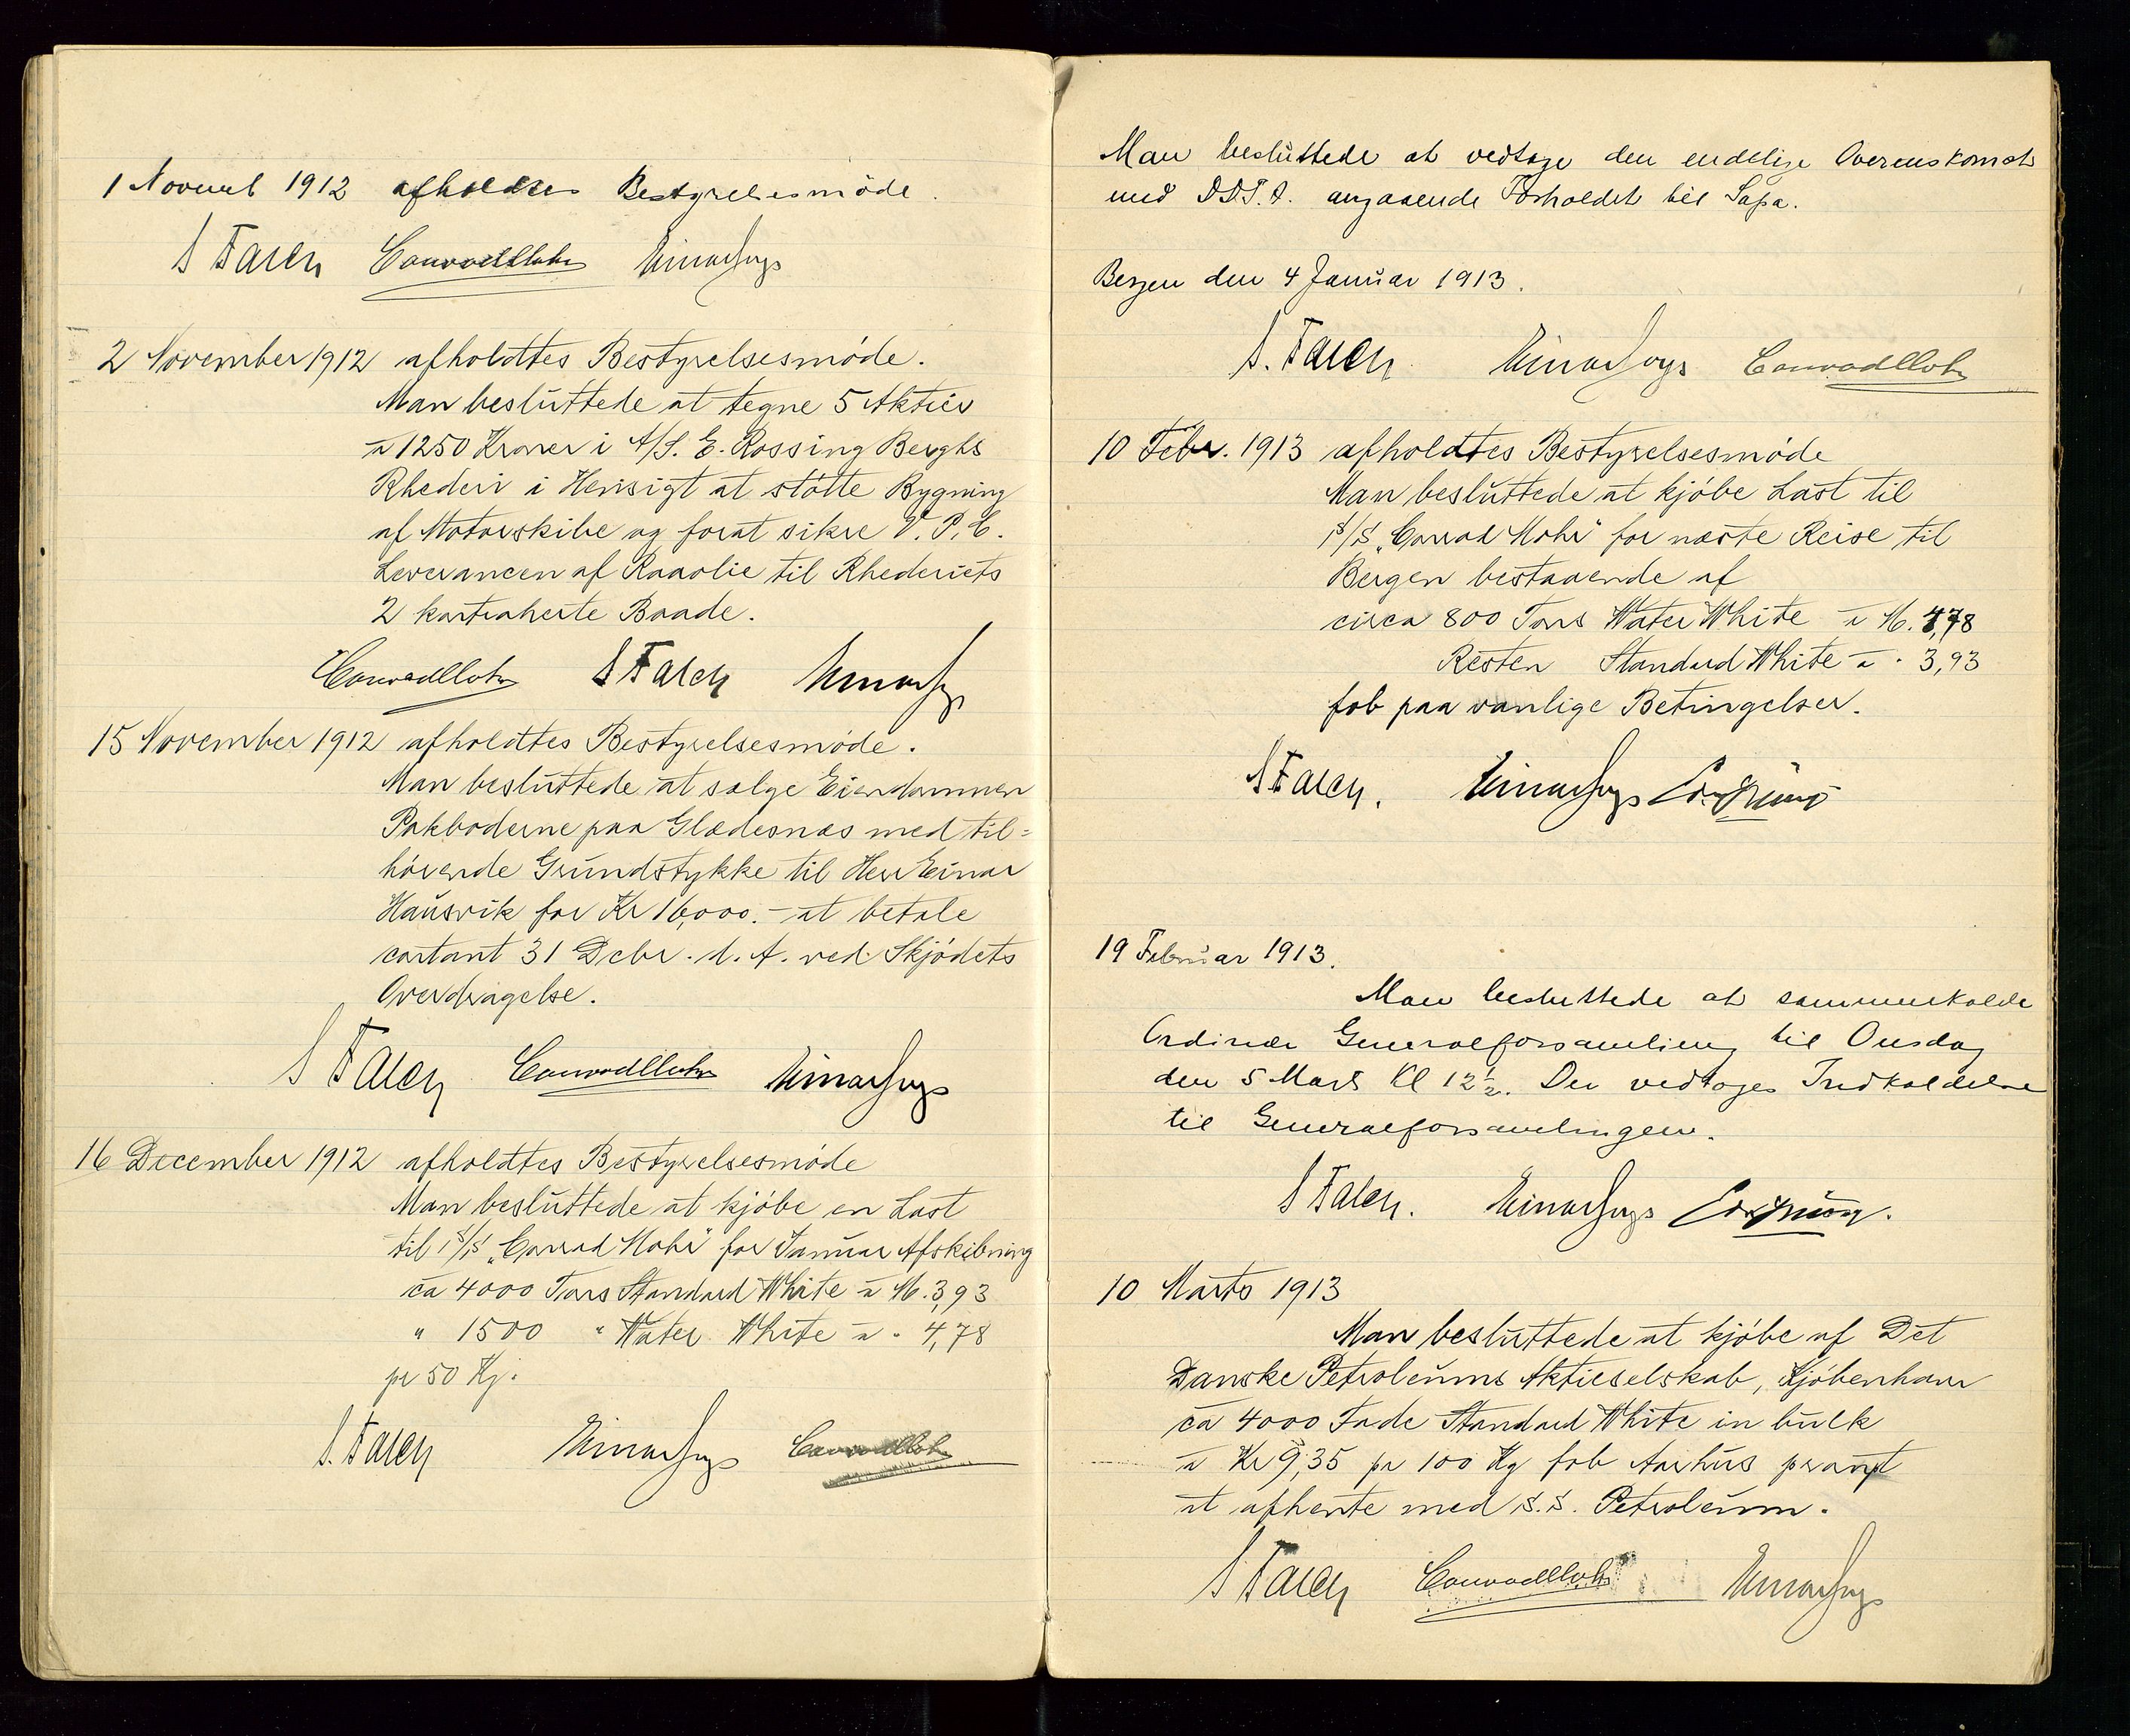 1 Novemb 1912 afholdtes Bestyrelsesmöde.
S Falch Conrad Mohr
2 November 1912 afholdtes Bestyrelsesmöde.
Man besluttede at tegne 5 Aktier
a 1250 Kroner i A/S. E. Rossing Berghs
Rhederi i Hensigt at stötte Bygning
af Motorskibe og forat sikre V. P. C.
Leverancen af Raaolie til Rhederiets
2 kontraherte Baade.
Conrad Mohr S Falch
15 November 1912 afholdtes Bestyrelsesmöde.
Man besluttede at sælge Eiendommen
Pakboderne paa Glædesnæs med til=
hörende Grundstykke til Herr Einar
Hausvik for Kr 16,000.- at betale
contant 31 Debr. d. A. ved Skjödets
Overdragelse.
S Falch Conrad Mohr
16 December 1912 afholdtes Bestyrelsesmöde
Man besluttede at kjöbe en Last
til 1 S/S „Conrad Mohr" for Januar Afskibning
ca 4000 Tons Standard White a M. 3,93
" 1500 " Water White a " 4,78
pr 50 Kg.
S. Falch Conrad Mohr
Man besluttede at vedtage den endelige Overenskomst
med DDPA. angaaende Forholdet til Sapa.
Bergen den 4 Januar 1913.
S. Falch Conrad Mohr
10 Febr. 1913 afholdtes Bestyrelsesmöde
Man besluttede at kjöbe Last til
1 S/S „Conrad Mohr" for næste Reise til
Bergen bestaaende af
circa 800 Tons Water White a M. 4,78
Resten Standard White a " 3,93
fob paa vanlige Betingelser.
S Falch.
19 Februar 1913.
Man besluttede at sammenkalde
Ordinær Generalforsamling til Onsdag
den 5 Marts Kl 12½. Der vedtoges Indkaldelse
til Generalforsamlingen.
S Falch.
10 Marts 1913
Man besluttede at kjöbe af Det
Danske Petroleums Aktieselskab, Kjöbenhavn
ca 4000 Fade Standard White in bulk
a Kr 9,35 pr 100 Kg fob Aarhus prompt
at afhente med S.S. Petroleum.
S Falch Conrad Mohr